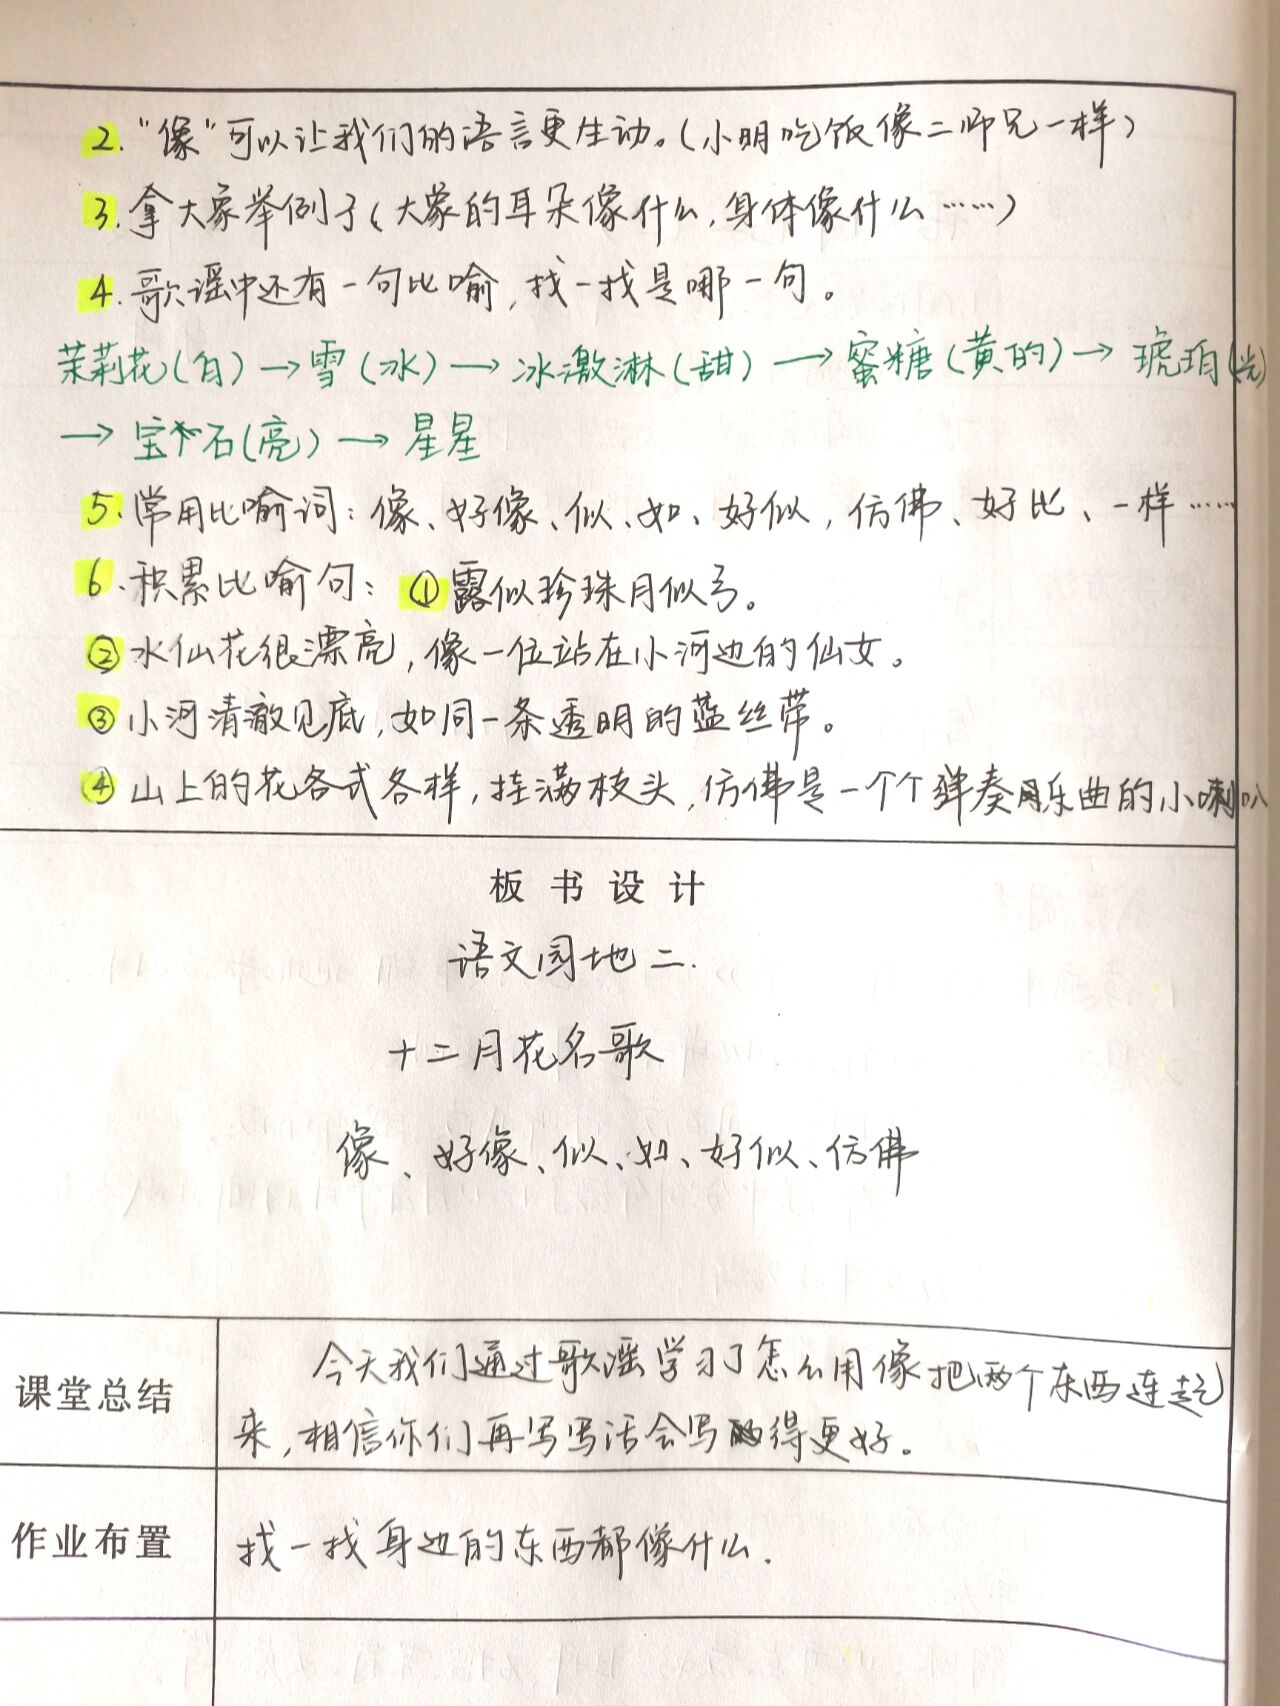 2. “像”可以让我们的语言更生动。(小明吃饭像二师兄一样)
3. 拿大象举例子(大象的耳朵像什么,身体像什么……)
4. 歌谣中还有一句比喻,找一找是哪一句。
茉莉花(白)→雪(冰)→冰激淋(甜)→蜜糖(黄的)→琥珀(光)
→宝石(亮)→星星
5. 常用比喻词:像、好像、似、如、好似,仿佛、好比、一样……
6. 积累比喻句: ①露似珍珠月似弓。
②水仙花很漂亮,像一位站在小河边的仙女。
③小河清澈见底,如同一条透明的蓝丝带。
④山上的花各式各样,挂满枝头,仿佛是一个个弹奏乐曲的小喇叭
板书设计
语文园地二.
十二月花名歌
像、好像、似、如、好似、仿佛
课堂总结
今天我们通过歌谣学习了怎么用像把两个东西连起
来,相信你们再写写话会写得更好。
作业布置
找一找身边的东西都像什么.